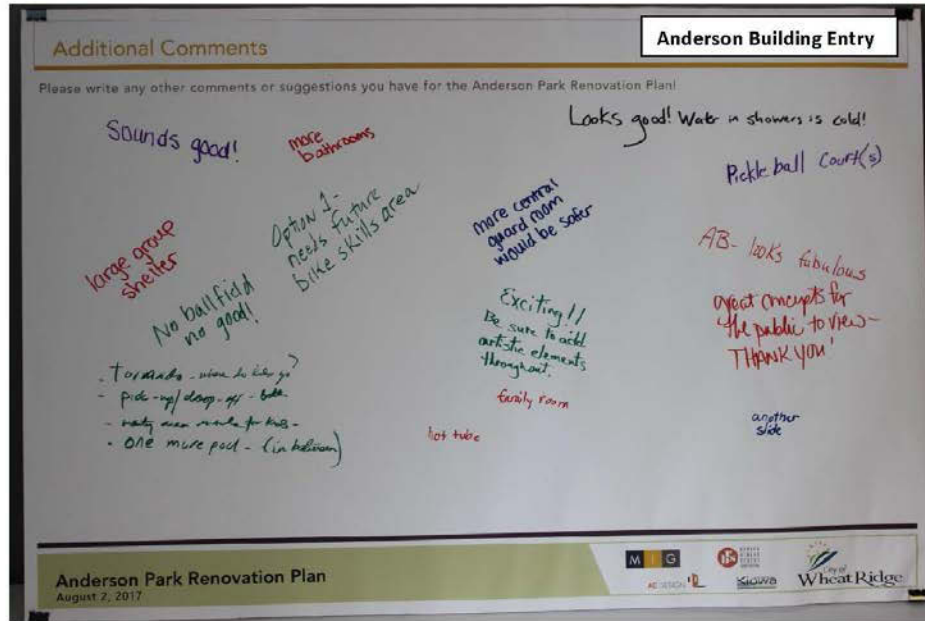 Additional Comments
Anderson Building Entry
Please write any other comments or suggestions you have for the Anderson Park Renovation Plan!
Sounds good!
more
bathrooms
Looks good! Water in showers is cold!
Pickleball Court(s)
large group
shelter
Option 1-
needs future
bike skills area
more central
guard room
would be safer
No ballfield
no good!
AB- looks fabulous
great concepts for
the public to view-
THANK YOU!
Exciting!!
Be sure to add
artistic elements
throughout.
family room
. Tornado - where to go?
- pick-up/drop-off -
- area for kids-
. one more pool - (in
hot tube
another
slide
Anderson Park Renovation Plan
August 2, 2017
MIG
Kiowa
City of
Wheat Ridge